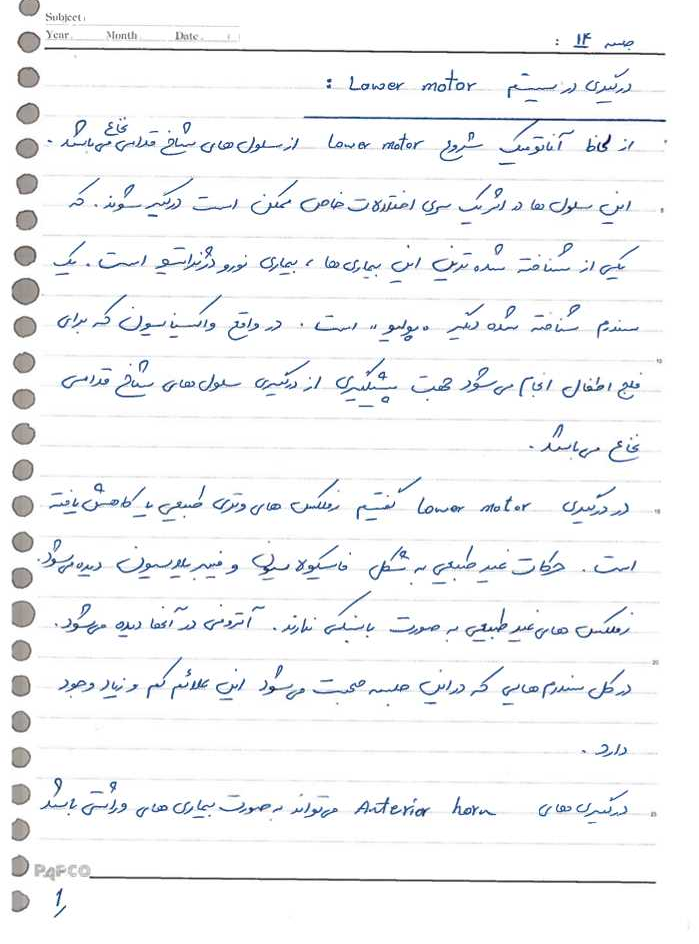 Subject:
Year. Month Date. ( )
جلسه ۱۴ :
درگیری در سیستم Lower motor :
از لحاظ آناتومیک شروع Lower motor از سلول های شاخ قدامی نخاع می باشد.
این سلول ها در اثر یک سری اختلالات خاص ممکن است درگیر شوند. که
5
یکی از شناخته شده ترین این بیماری ها، بیماری نورودژنراتیو است. یک
سندرم شناخته شده دیگر «پولیو» است. در واقع واکسیناسیون که برای
10
فلج اطفال انجام می شود جهت پیشگیری از درگیری سلول های شاخ قدامی
نخاع می باشد.
در درگیری Lower motor گفتیم رفلکس های وتری طبیعی یا کاهش یافته
15
است. حرکات غیر طبیعی به شکل فاسیکولاسیون و فیبریلاسیون دیده می شود.
رفلکس های غیر طبیعی به صورت بابنسکی ندارند. آتروفی در آنها دیده می شود.
20
در کل سندرم هایی که در این جلسه صحبت می شود این علائم کم و زیاد وجود
دارد.
درگیری های Anterior horn می تواند به صورت بیماری های وراثتی باشد
25
PAPCO
1